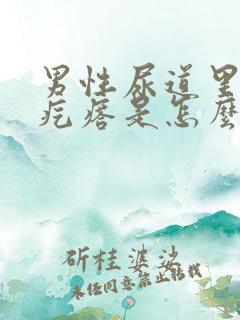 男性尿道里
疙瘩是怎麽
斫桂婆娑
未经同意禁止转载